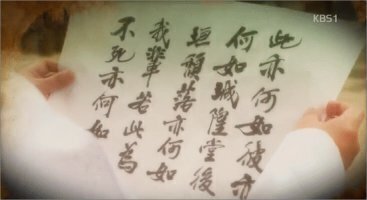 KBS1
此亦何如彼亦
何如城隍堂後
垣頹落亦何如
我輩若此為
不死亦何如